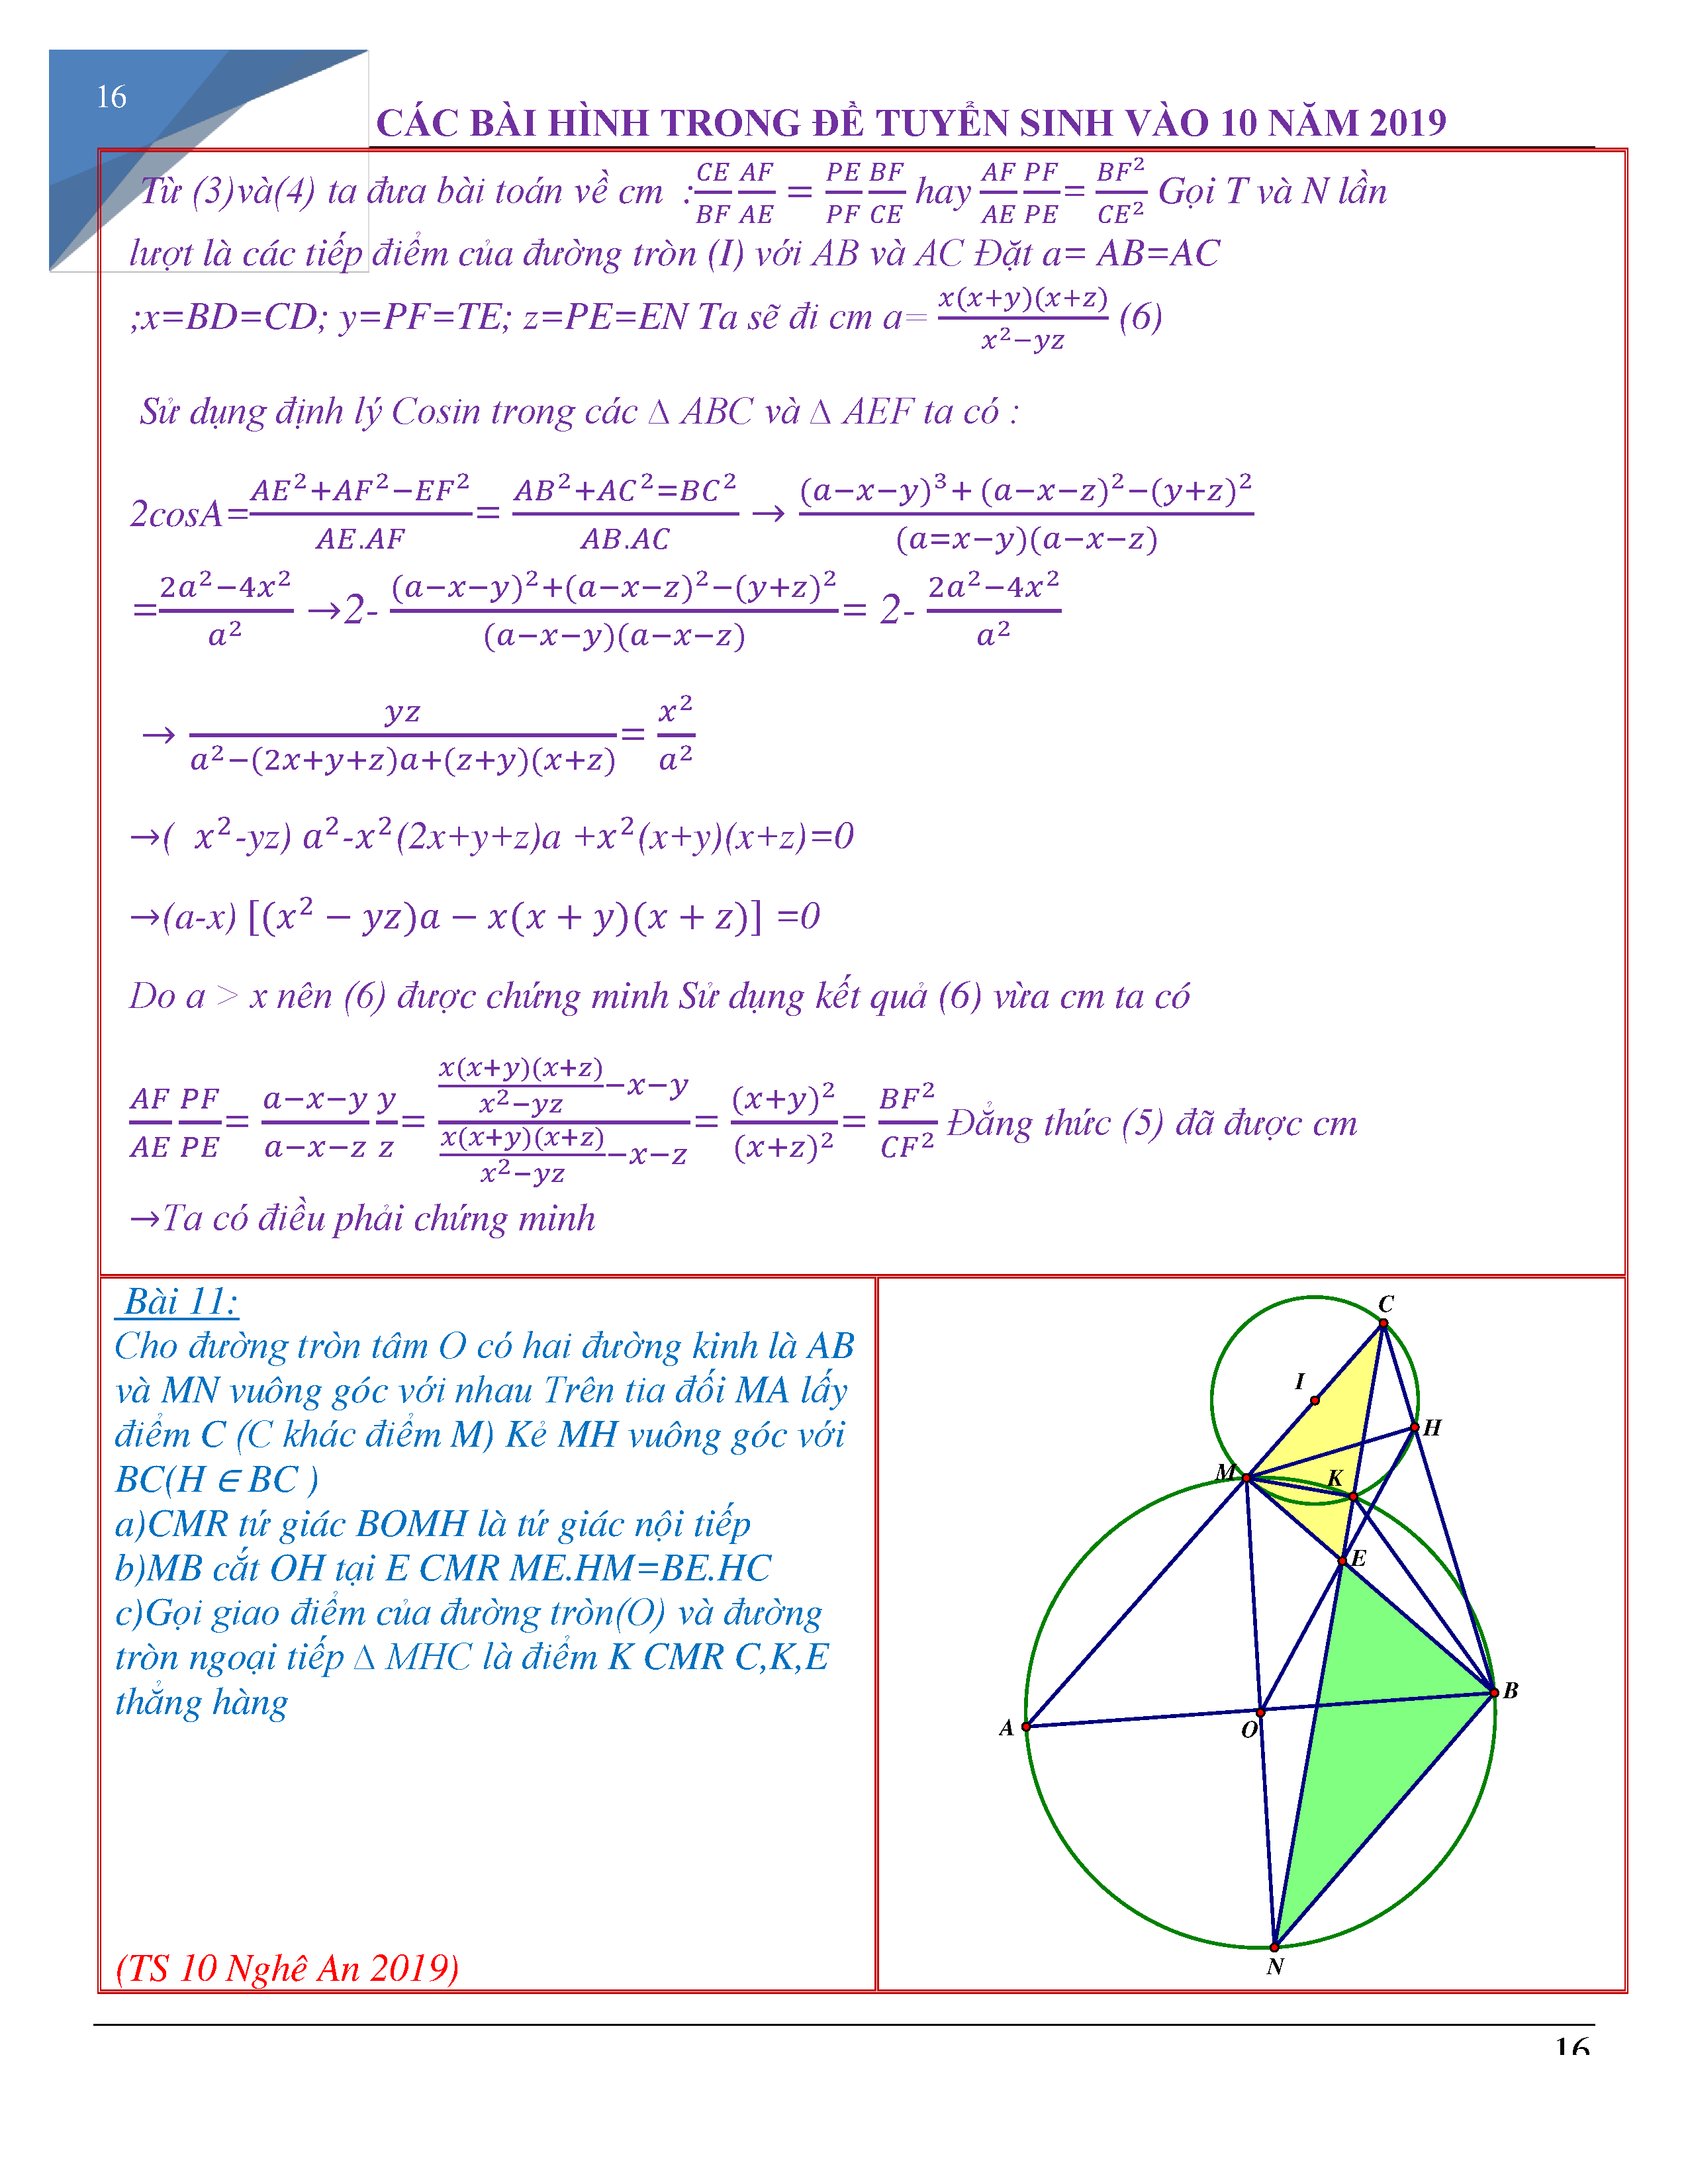 16
CÁC BÀI HÌNH TRONG ĐỀ TUYỂN SINH VÀO 10 NĂM 2019
Từ (3)và(4) ta đưa bài toán về cm :$\frac{CE}{BF}\frac{AF}{AE}=\frac{PE}{PF}\frac{BF}{CE}$ hay $\frac{AF}{AE}\frac{PF}{PE}=\frac{BF^2}{CE^2}$ Gọi T và N lần
lượt là các tiếp điểm của đường tròn (I) với AB và AC Đặt a= AB=AC
;x=BD=CD; y=PF=TE; z=PE=EN Ta sẽ đi cm a= $\frac{x(x+y)(x+z)}{x^2-yz}$ (6)
Sử dụng định lý Cosin trong các ∆ ABC và ∆ AEF ta có :
2cosA=$\frac{AE^2+AF^2-EF^2}{AE.AF}=\frac{AB^2+AC^2=BC^2}{AB.AC}\to\frac{(a-x-y)^3+(a-x-z)^2-(y+z)^2}{(a=x-y)(a-x-z)}$
=$\frac{2a^2-4x^2}{a^2}$ →2- $\frac{(a-x-y)^2+(a-x-z)^2-(y+z)^2}{(a-x-y)(a-x-z)}$= 2- $\frac{2a^2-4x^2}{a^2}$
→ $\frac{yz}{a^2-(2x+y+z)a+(z+y)(x+z)}=\frac{x^2}{a^2}$
→( $x^2$-yz) $a^2$-$x^2$(2x+y+z)a +$x^2$(x+y)(x+z)=0
→(a-x) $[(x^2-yz)a-x(x+y)(x+z)]$ =0
Do a > x nên (6) được chứng minh Sử dụng kết quả (6) vừa cm ta có
$\frac{AF}{AE}\frac{PF}{PE}=\frac{a-x-y}{a-x-z}\frac{y}{z}=\frac{\frac{x(x+y)(x+z)}{x^2-yz}-x-y}{\frac{x(x+y)(x+z)}{x^2-yz}-x-z}=\frac{(x+y)^2}{(x+z)^2}=\frac{BF^2}{CF^2}$ Đẳng thức (5) đã được cm
→Ta có điều phải chứng minh
Bài 11:
Cho đường tròn tâm O có hai đường kinh là AB
và MN vuông góc với nhau Trên tia đối MA lấy
điểm C (C khác điểm M) Kẻ MH vuông góc với
BC(H ∈ BC )
a)CMR tứ giác BOMH là tứ giác nội tiếp
b)MB cắt OH tại E CMR ME.HM=BE.HC
c)Gọi giao điểm của đường tròn(O) và đường
tròn ngoại tiếp ∆ MHC là điểm K CMR C,K,E
thẳng hàng
(TS 10 Nghê An 2019)
C
I
H
M
K
E
B
A
O
N
16